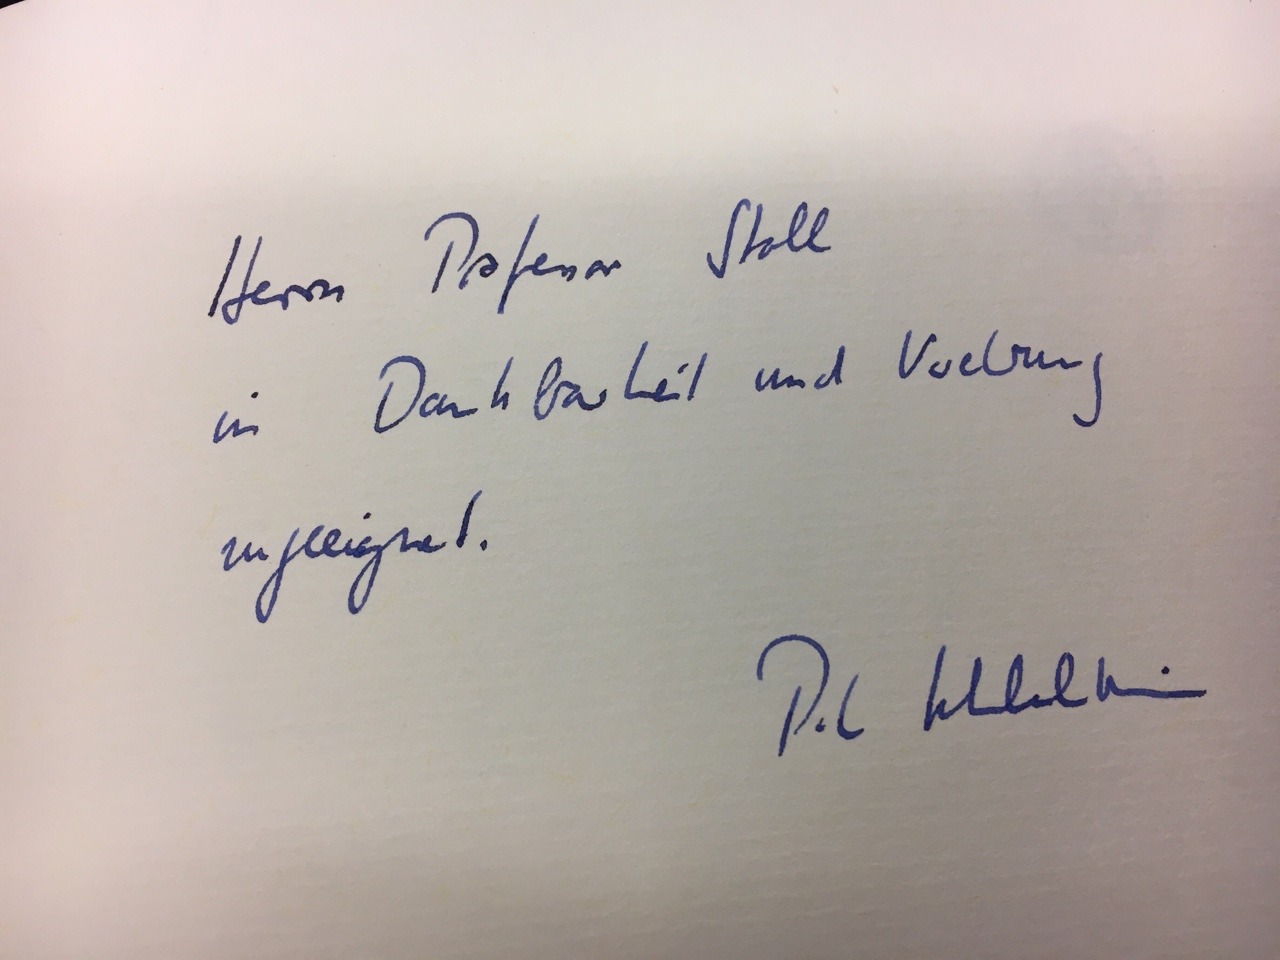 Herrn Professor Stoll
in Dankbarkeit und Verehrung
zugeeignet.